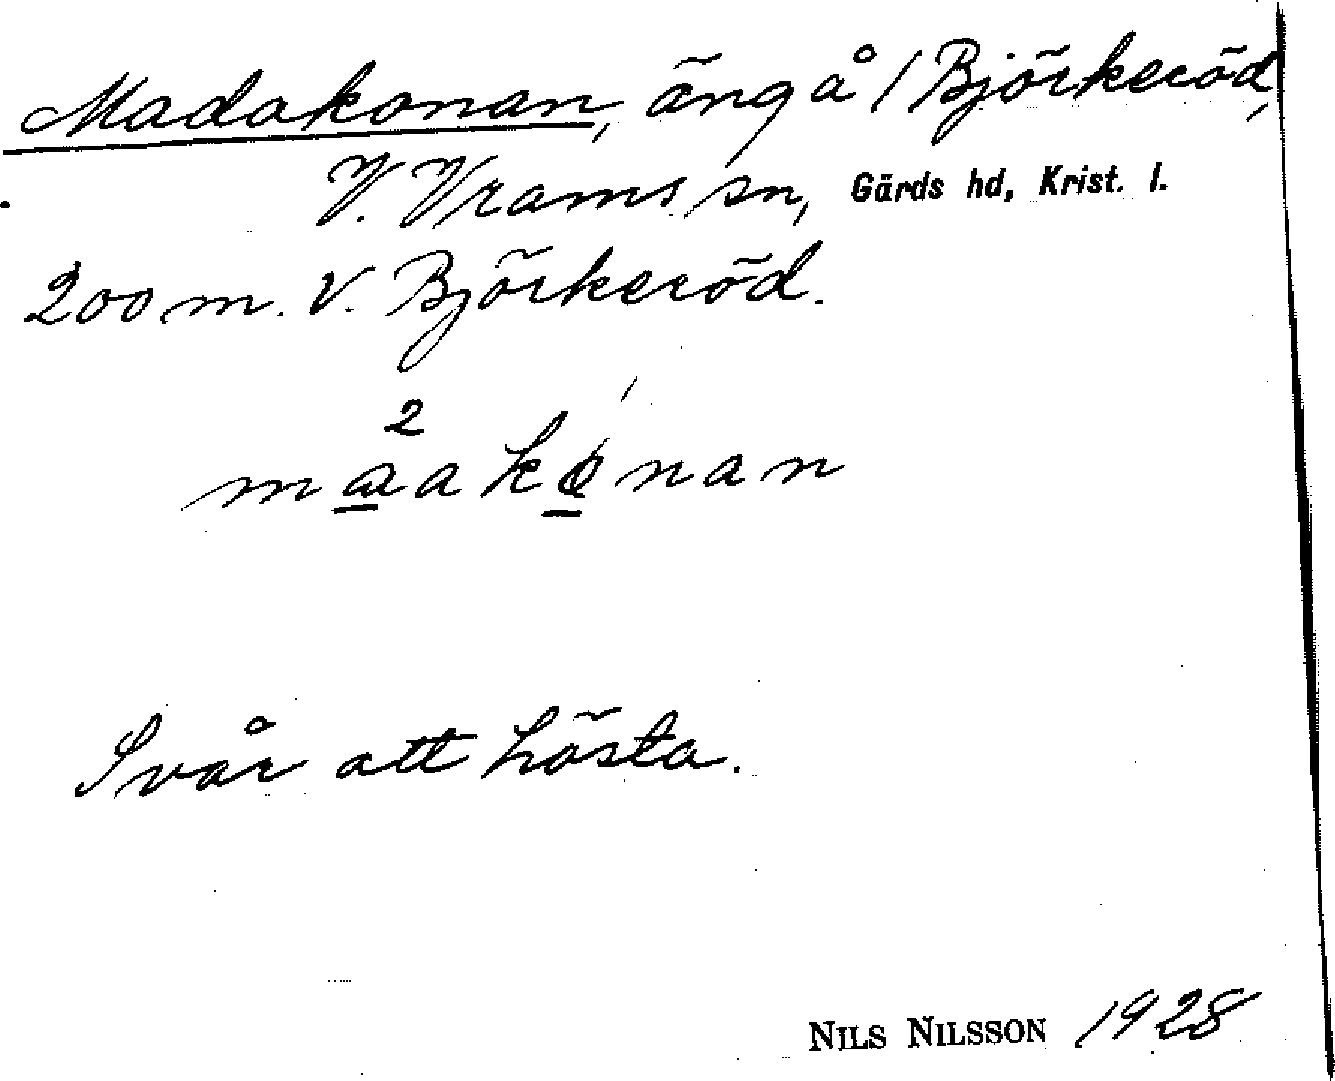 Madakonan, äng å / Björkeröd,
V. Vrams sn, Gärds hd, Krist. l.
200 m. V. Björkeröd.
2
maakonan
Svår att hösta.
NILS NILSSON 1928